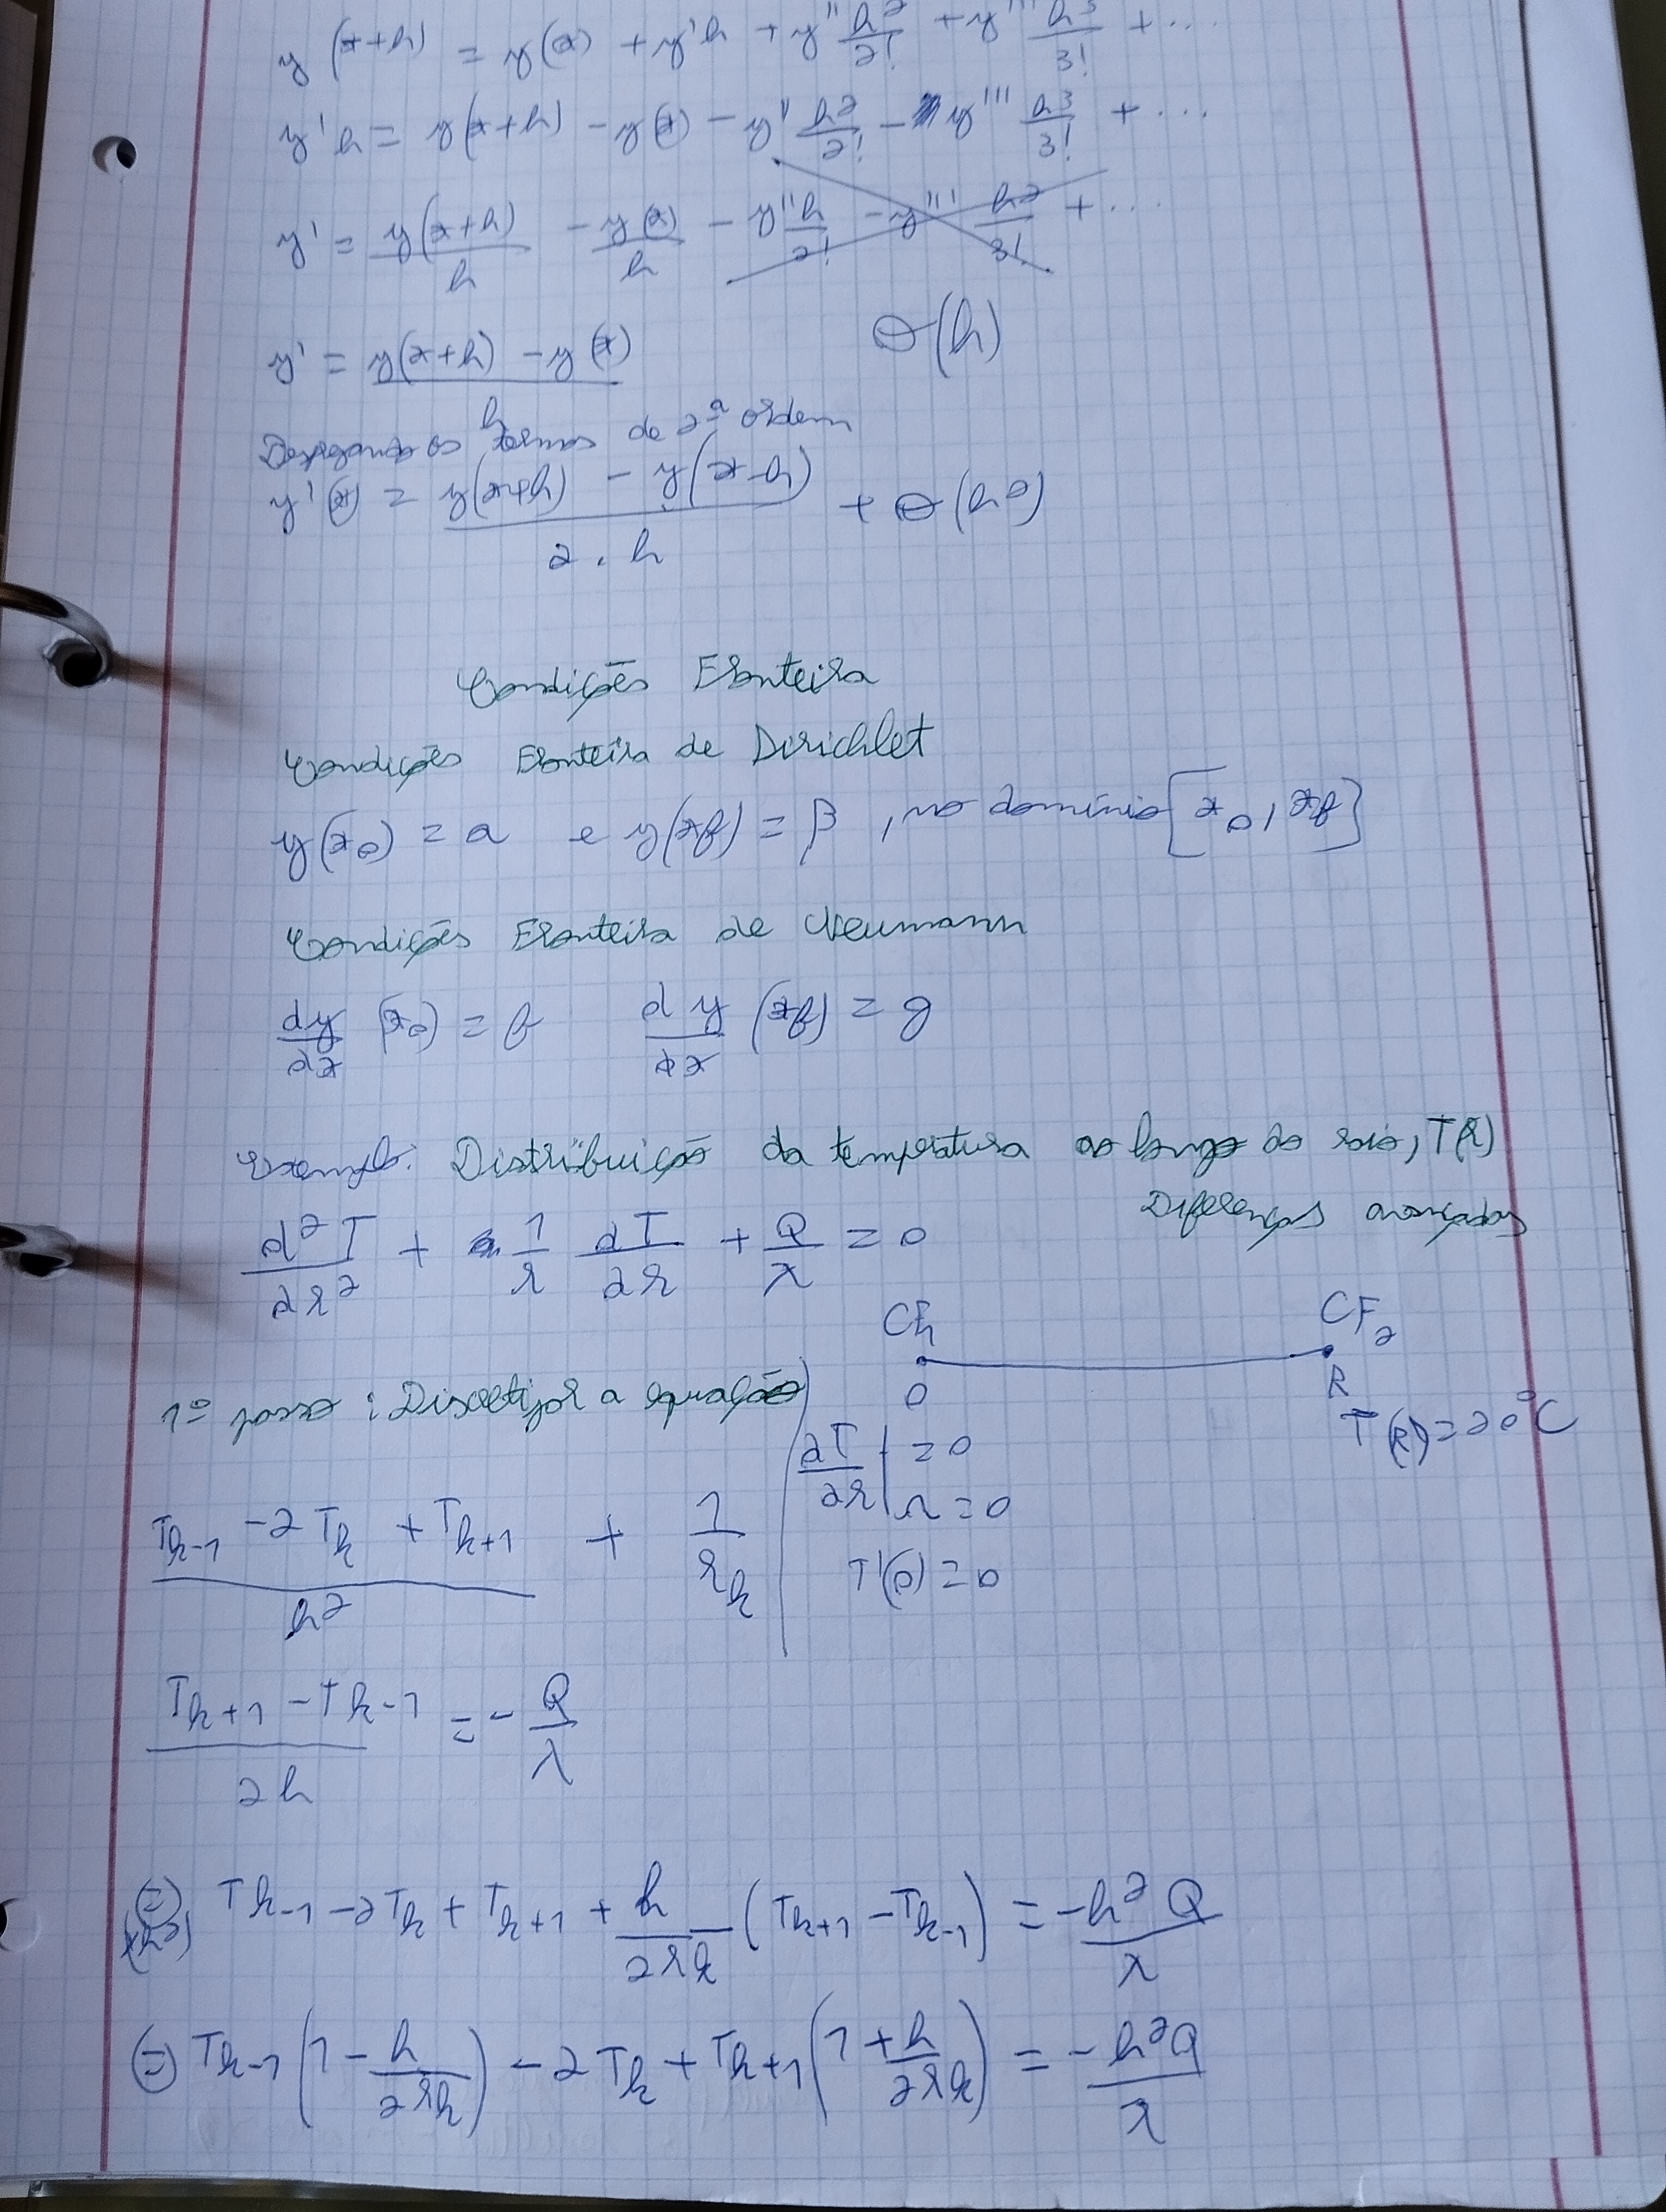 y(x+h) = y(x) + y'h + y'' h²/2! + y''' h³/3! + ...
y'h = y(x+h) - y(x) - y'' h²/2! - y''' h³/3! + ...
y' = y(x+h)/h - y(x)/h - y''h/2! - y''' h²/3! + ...
y' = (y(x+h) - y(x))/h O(h)
os termos de 2ª ordem
y'(x) = (y(x+h) - y(x-h))/(2.h) + O(h²)
Condições Fronteira
Condições Fronteira de Dirichlet
y(x0) = a e y(xf) = β, no domínio [x0, xf]
Condições Fronteira de Neumann
dy/dx (x0) = f dy/dx (xf) = g
Exemplo: Distribuição da temperatura ao longo do raio, T(r)
Diferenças avançadas
d²T/dr² + 1/r dT/dr + Q/λ = 0
CF1 CF2
0 R
T(R) = 20°C
1º passo: Discretizar a equação
dT/dr | r=0 = 0
T'(0) = 0
(Tk-1 - 2Tk + Tk+1)/h² + 1/rk
(Tk+1 - Tk-1)/2h = - Q/λ
(=) (xh²) Tk-1 - 2Tk + Tk+1 + h/2rk (Tk+1 - Tk-1) = -h² Q/λ
(=) Tk-1 (1 - h/2rk) - 2Tk + Tk+1 (1 + h/2rk) = -h²Q/λ